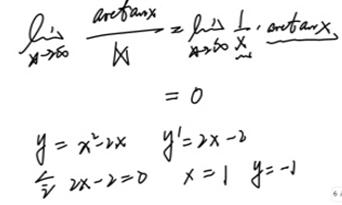 lim x→∞ arctanx / x = lim x→∞ 1/x · arctanx
= 0
y = x²-2x   y' = 2x-2
令 2x-2=0   x=1   y=-1